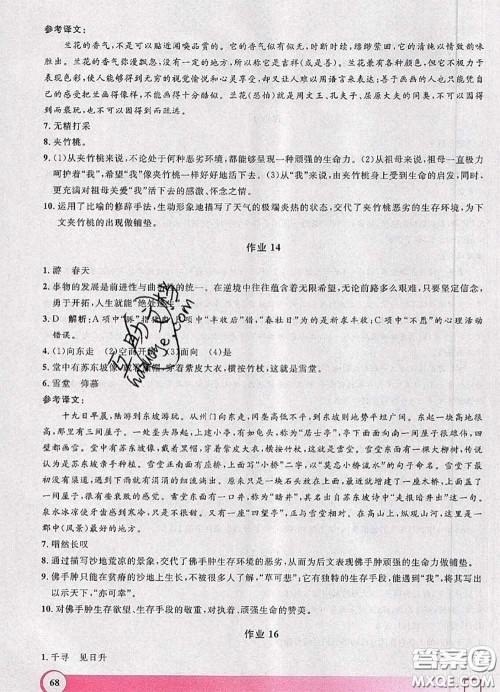 参考译文:
兰花的香气,不可以贴近闻嗅品赏的。它的香气似有似无,时续时停,缥缈萦回,它的清纯以情致的韵味
胜出。兰花的香气弥漫飘忽,没有一定的地方,所以称它是吉祥(或是善)。兰花虽然兼有各种颜色,但它不极力于
表现色彩,使人能够感受到无形的视觉愉悦和心灵享受,大概与人的本性相一致吧。善于画画的人也只能尽自
己的感觉把兰画得像样,不能画得十分酷似。兰花好像就是周文王、孔夫子、屈原大夫的同类,不可以
得到而亵玩,也不可以得到而疏远。
7. 无精打采
8. 夹竹桃。
9. (1)从夹竹桃来说,不论处于何种恶劣环境,都能展现强的生命力。(2)从祖母来说,祖母一直极力
呵护着“我”,希望“我”像夹竹桃一样好好地活下去。(3)从“我”来说,从夹竹桃身上受到生命的
启发,更充满对祖母关爱“我”活下去的感激、怀念之情。
10. 运用了比喻的修辞手法,生动形象地描写了天气的极端炎热的状态,交代了夹竹桃恶劣的生存环境,为下
文夹竹桃的出现做铺垫。
作业 14
1. 游 春天
2. 事物的发展是前进性与曲折性的统一。在逆境中往往蕴含着无限希望,无论前路多么艰难,只要坚定信念,
勇于开拓,人生就能“绝处逢生”
3. D 解析:A 项中“豚”指猪 项中“丰收后”错,“春社日”为的是祈求丰收;C 项中“不愿”的心理活动
错误。
4. (1)向东走 (2)空而开 (3)面向 (4)是
5. 堂中有苏东坡像 帽,穿着紫皮大衣,横按竹杖,坐着。
6. 雪堂 仰慕
参考译文:
十九日早晨,陆游到东坡游玩。从州门向东走,冈垄高低不平,到东坡则地势平坦广阔。东起一块高地很
高,那里有三间屋子。有一龟头,上边建小亭,有一匾上书“居士亭”,亭下面向南的一间屋子很雄伟,四
壁都画雪。堂中有苏东坡像,戴着黑帽,穿着紫皮大衣,横按竹杖,坐着,这就是雪堂。雪堂东面有一棵大柳树,
传说是苏东坡亲手种植。雪堂正南面有座桥,桥上题写“小桥”二字,以“莫忘小桥流水”的句子命名。其下
原来没有水流,遇到下雨就有涓细的流淌出。原来只是一块石头放在上面,近来随意增建了一座木桥,上盖了
一间屋子,很败坏人的兴致。雪堂东面有一口井,称为“暗井”,其名取自苏东坡诗中“走报暗井出”一句。
泉水冰冷使牙齿感到寒冷,只是不是特别甘甜。又有一“四望亭”,正与雪堂相对。在高阜上观览江山,为一
郡中(风景)最好的地方。
7. 喟然长叹
8. 通过描写沙地荒凉的景象,交代了佛手肿生存环境的恶劣,从而为后文表现佛手肿顽强的生命力做铺垫。
9. 佛手肿只能在贫瘠的沙地上生长,不但表现了它的生命力,而且表现了它的生存手段,乐观、积极,将其写
出以示天下,“亦可幸”。
10. 对佛手肿生存欲望、生存手段的敬重,对执着、顽强生命的赞美。
作业 16
1. 千寻 见日升
68
互助文档
hdwdme.com
答案圈
MXQE.COM